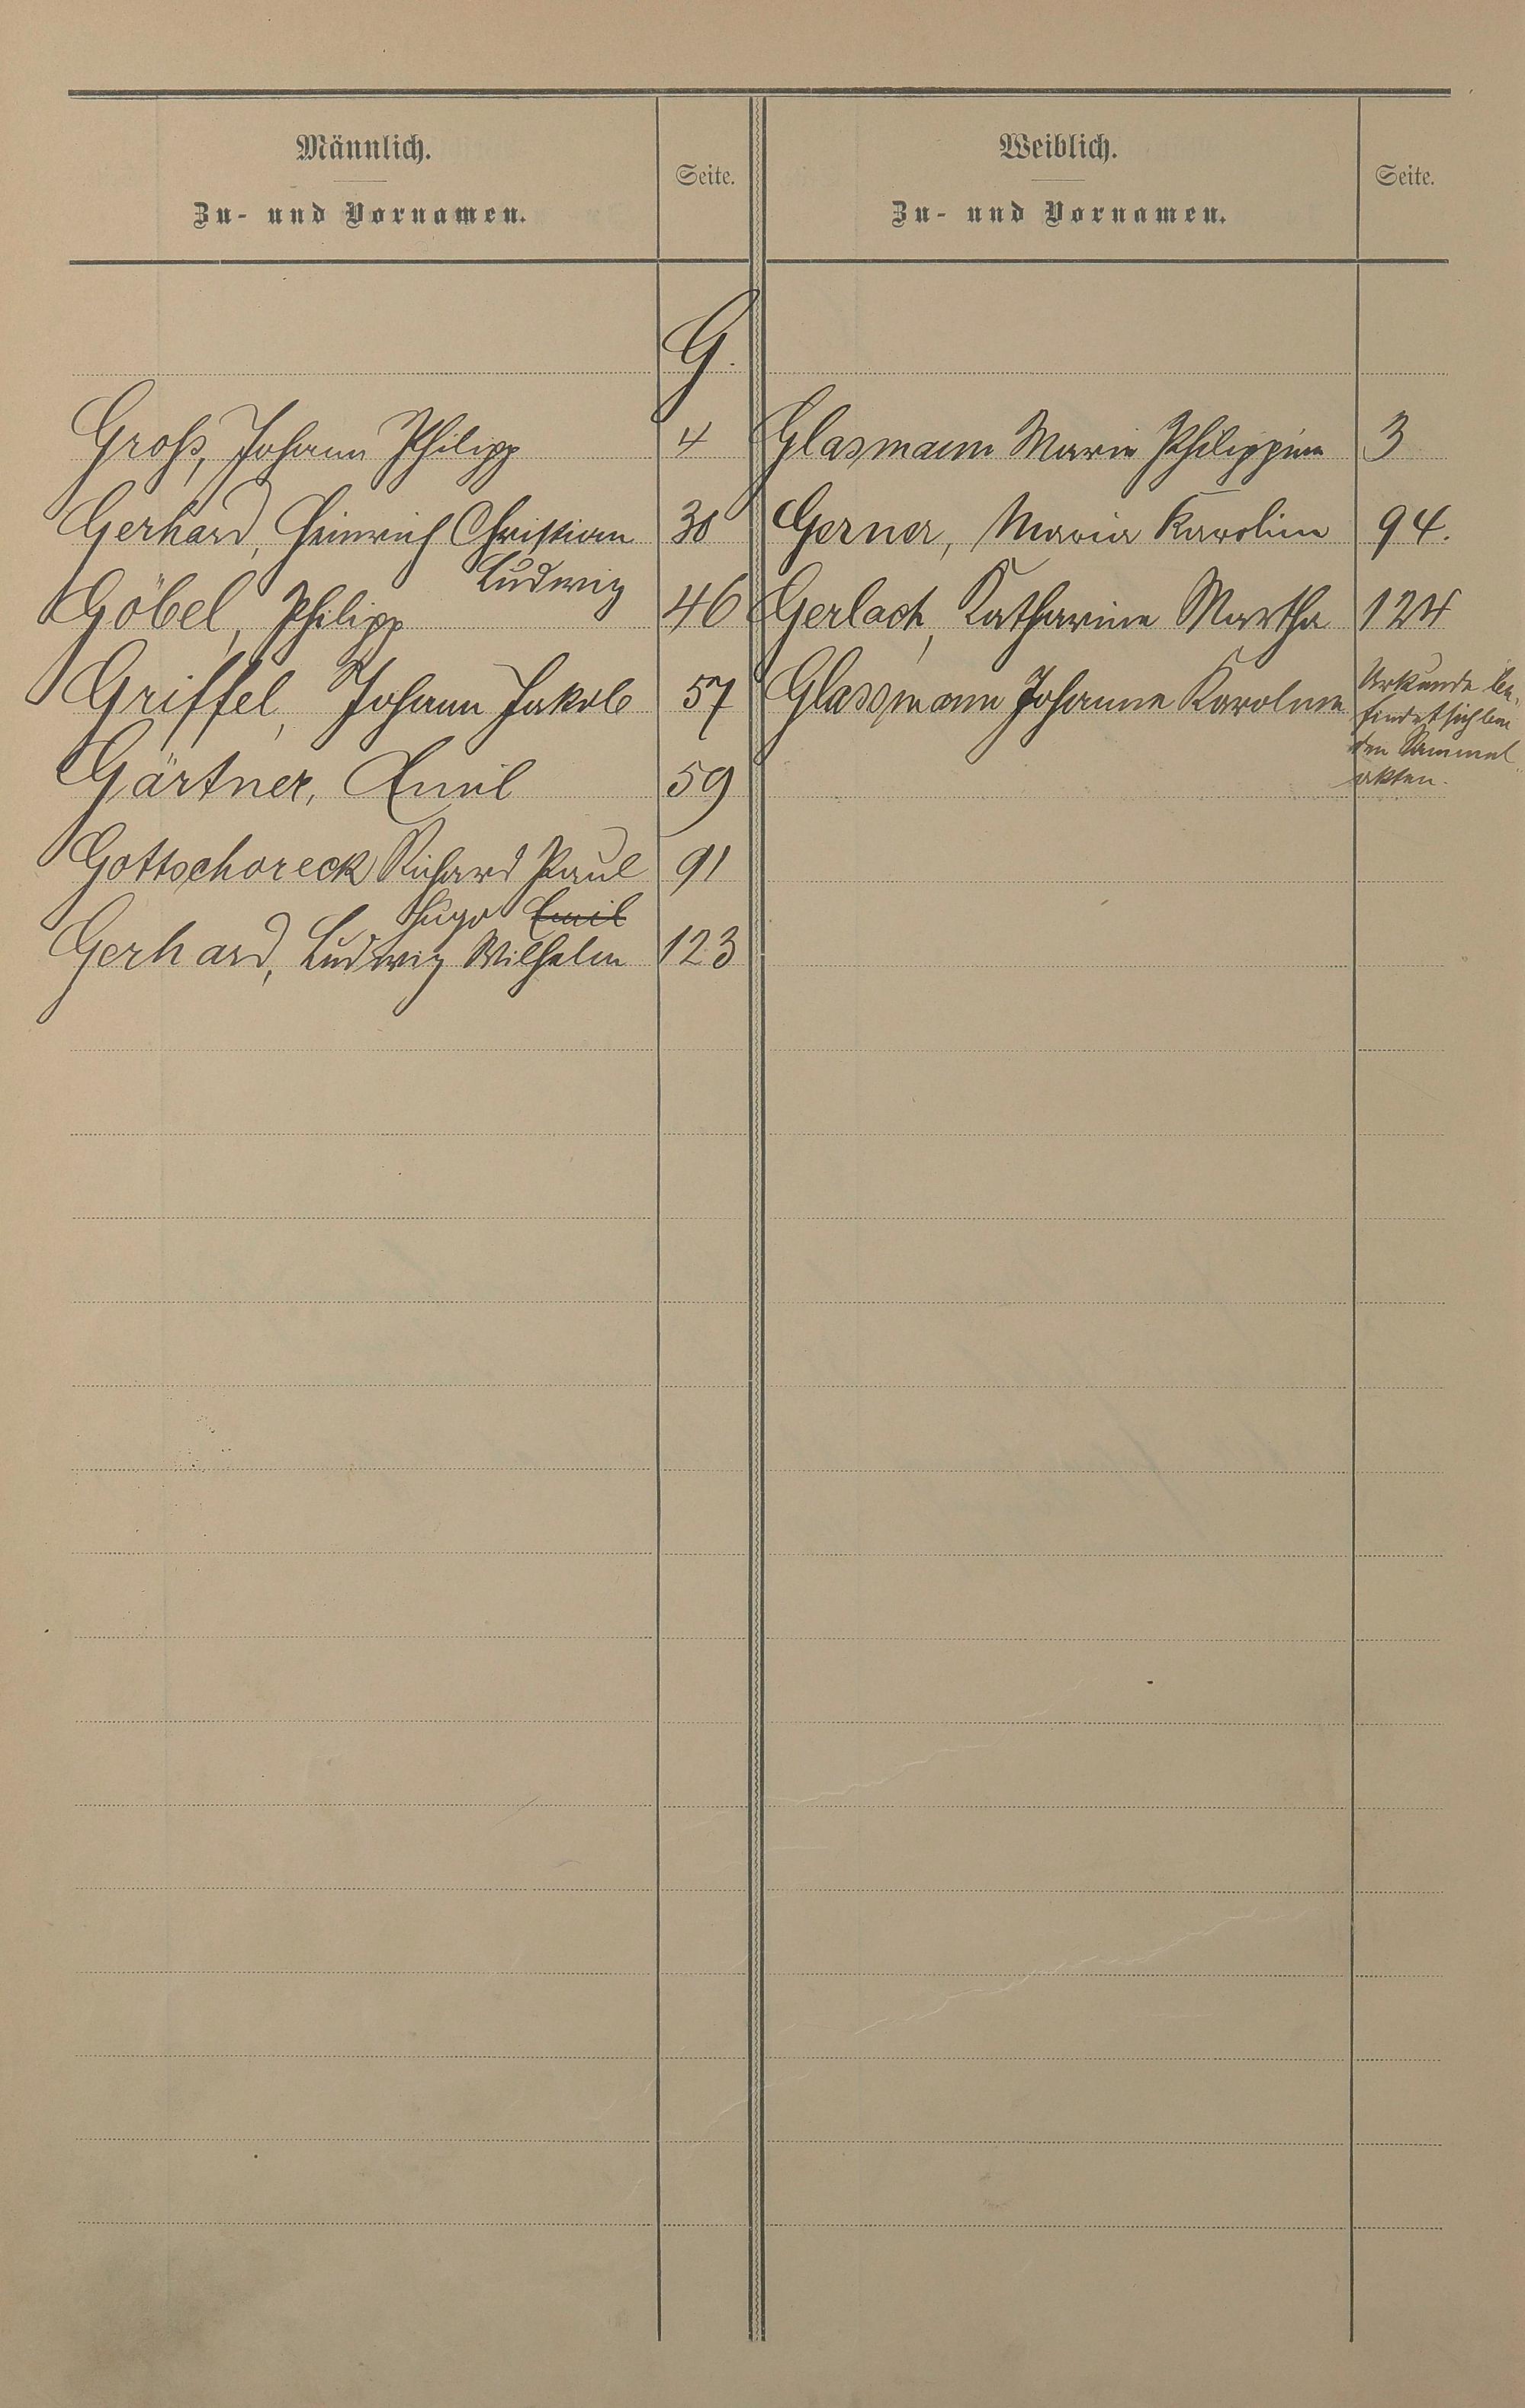 Männlich.
Zu- und Vornamen.
Seite.
Weiblich.
Zu- und Vornamen.
Seite.
G.
Groß, Johann Philipp 4
Gerhard, Heinrich Christian 38
Ludwig
Göbel, Philipp 46
Griffel, Johann Jakob 57
Gärtner, Emil 59
Gottschoreck Richard Paul 91
Hugo Emil
Gerhard, Ludwig Wilhelm 123
Glasmann Marie Philippine 3
Gerner, Maria Karoline 94.
Gerlach, Katharina Martha 124
Glassmann Johanna Karoline
Urkunde be-
findet sich bei
den Sammel-
akten.